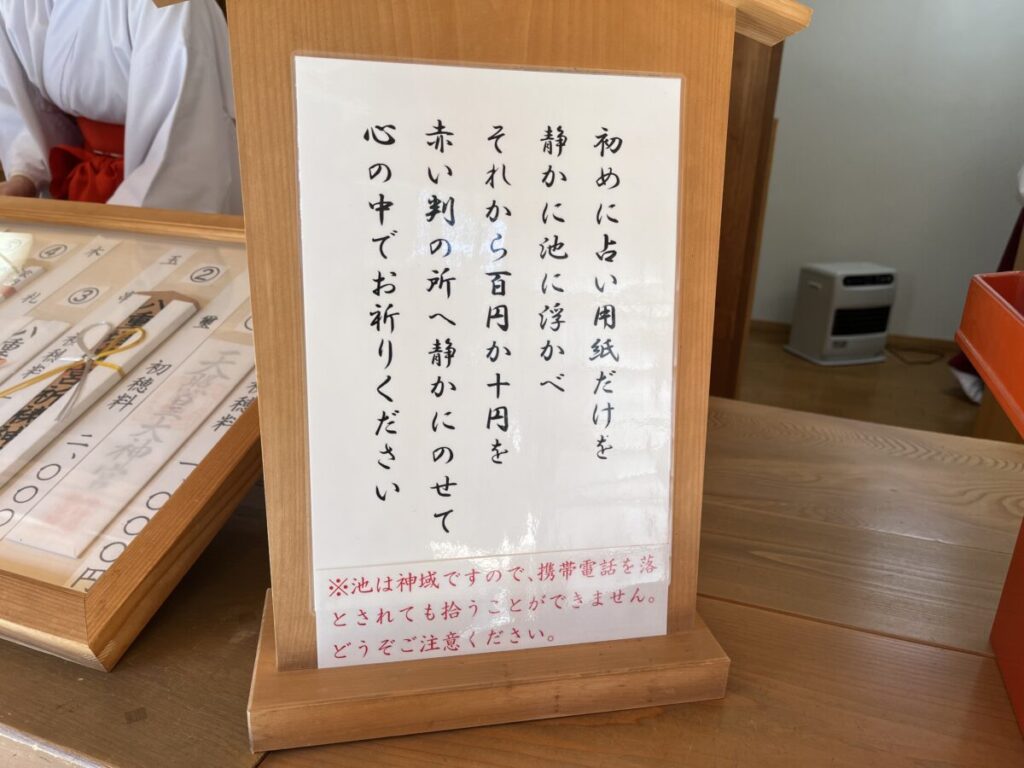 初めに占い用紙だけを
静かに池に浮かべ
それから百円か十円を
赤い判の所へ静かにのせて
心の中でお祈りください
※池は神域ですので、携帯電話を落
とされても拾うことができません。
どうぞご注意ください。
②
初穂料
二、〇〇〇円
③
④